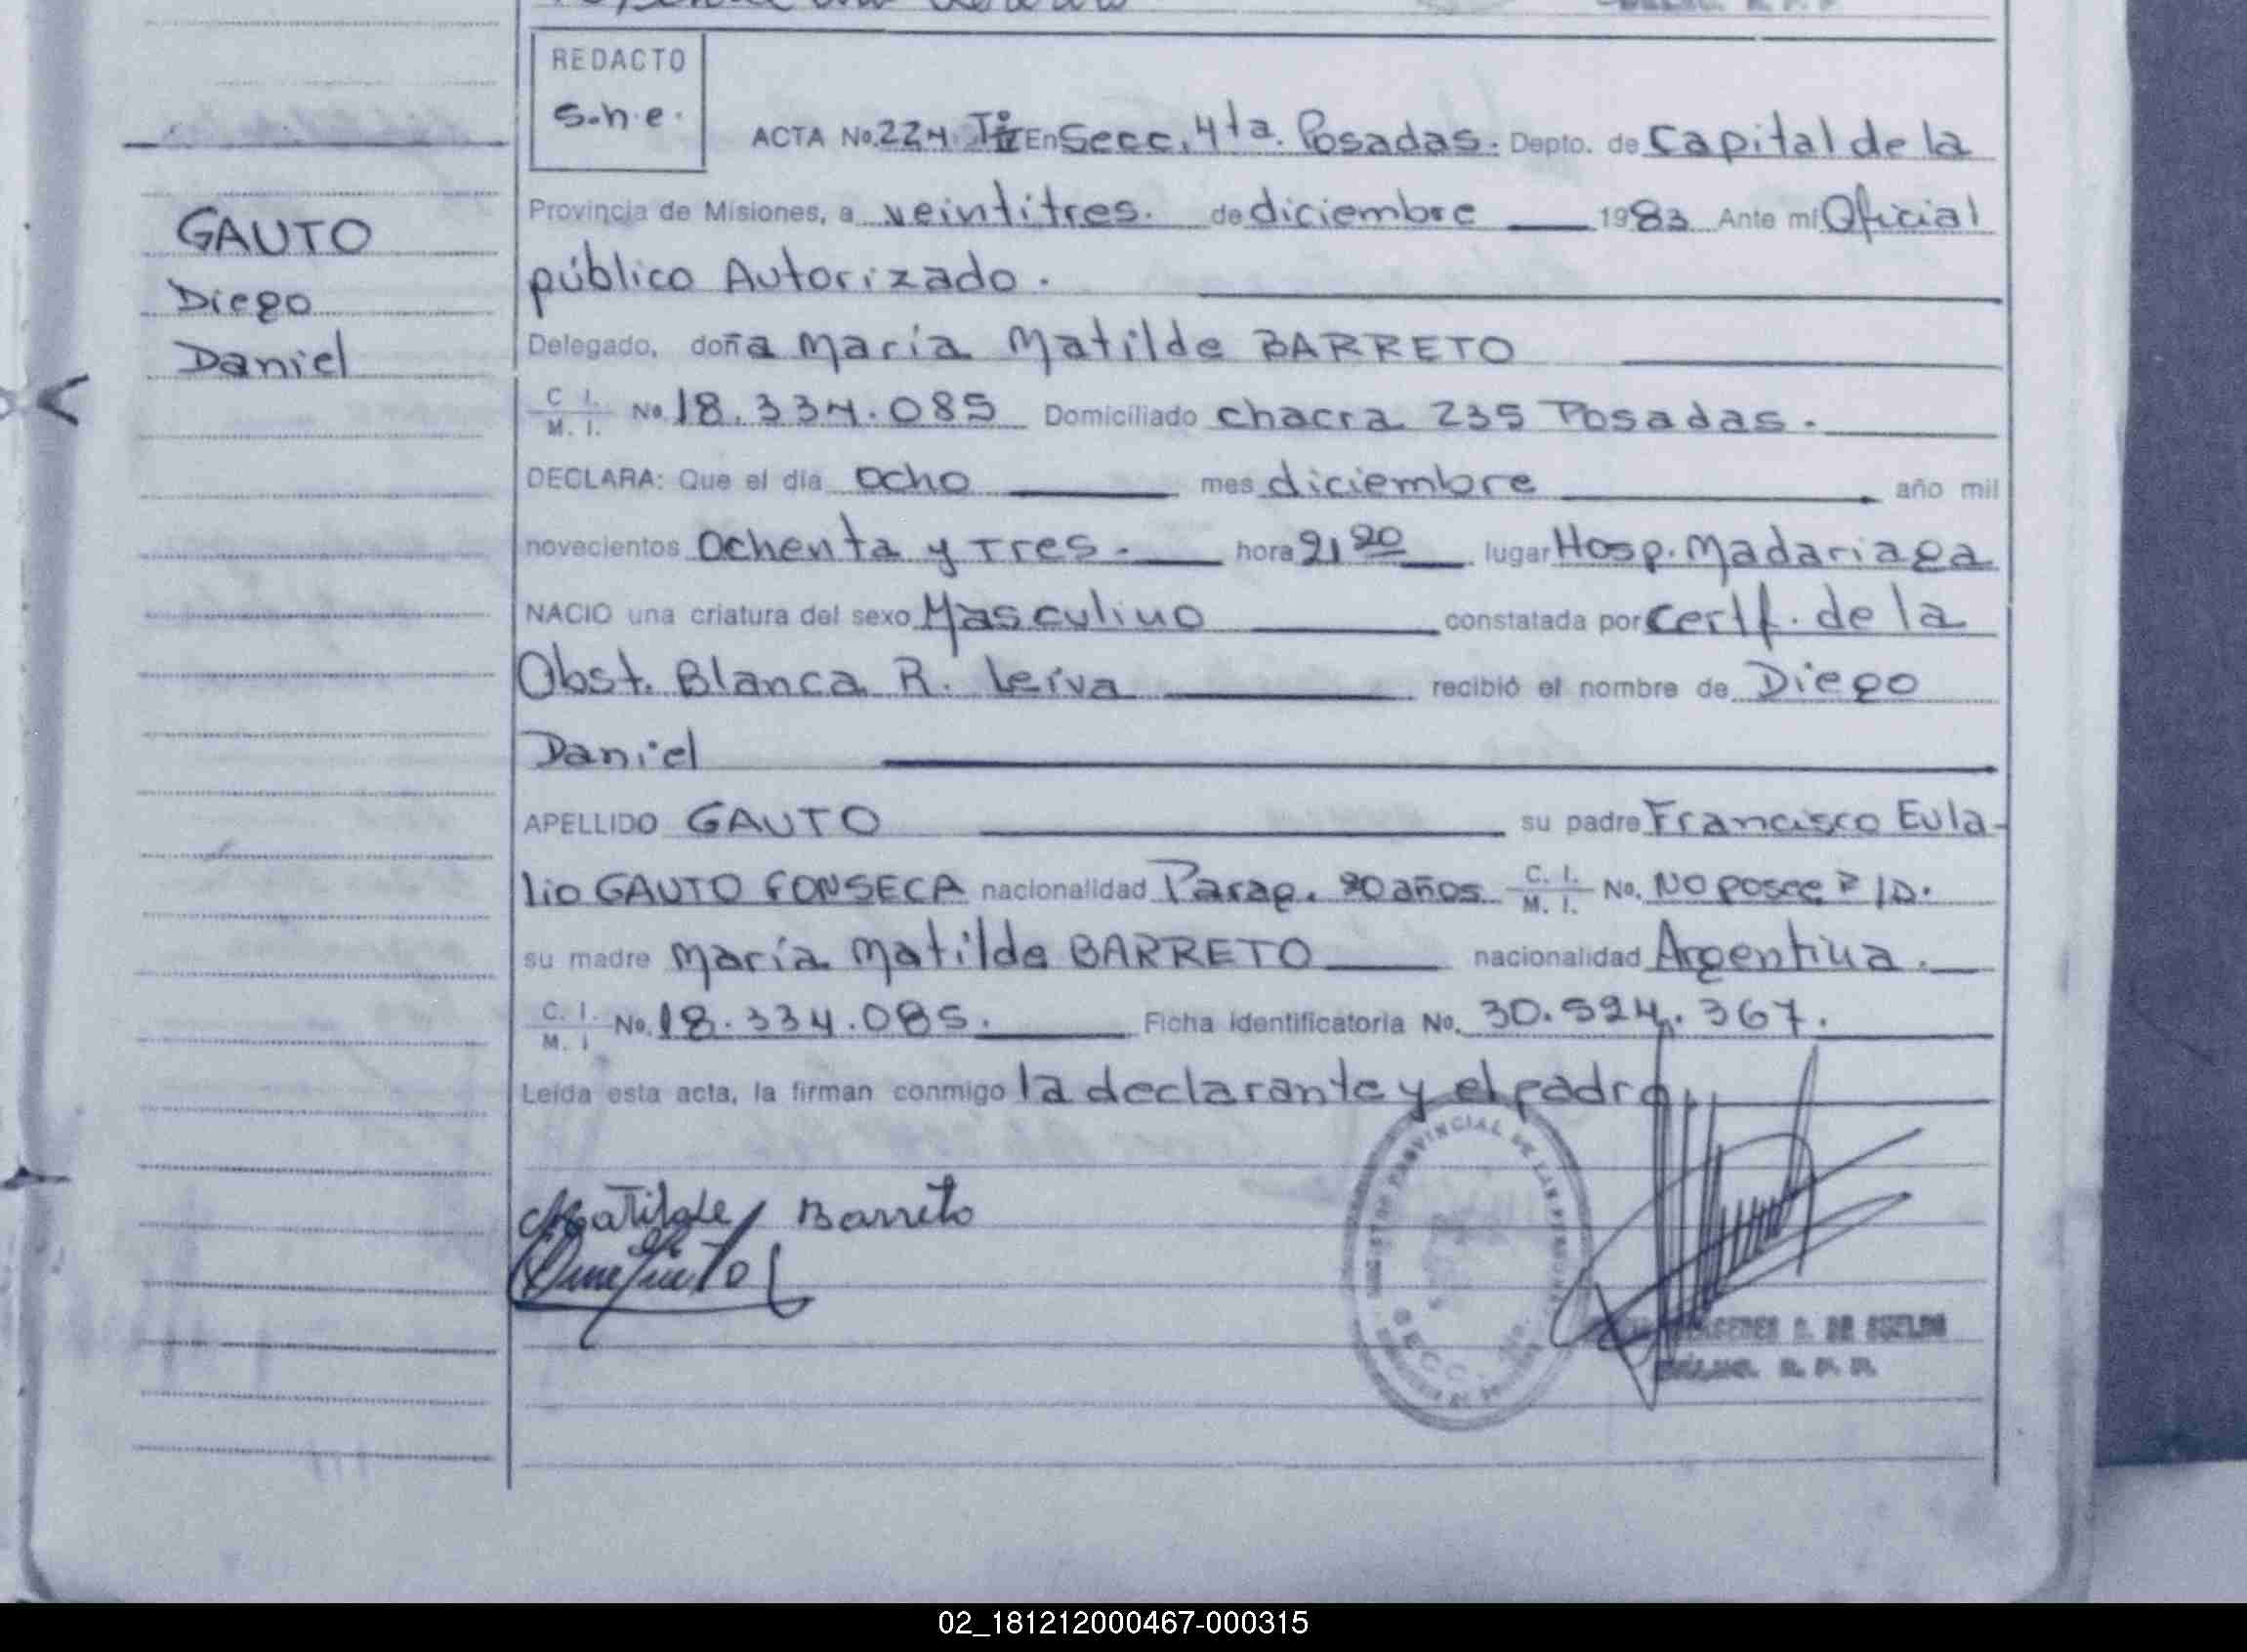 REDACTO
S.h.e.
ACTA No. 224 En Secc. 4ta. Posadas. Depto. de Capital de la
GAUTO
Diego
Daniel
Provincia de Misiones, a veintitres. de diciembre 1983 Ante mí Oficial
público Autorizado.
Delegado, doña María Matilde BARRETO
C I.
M. I. No. 18.334.085 Domiciliado chacra 235 Posadas.
DECLARA: Que el día ocho mes diciembre año mil
novecientos Ochenta y Tres. hora 21 20 lugar Hosp. Madariaga
NACIO una criatura del sexo Masculino constatada por Certf. de la
Obst. Blanca R. Leiva recibió el nombre de Diego
Daniel
APELLIDO GAUTO su padre Francisco Eula-
lio GAUTO FONSECA nacionalidad Parag. 20 años C. I.
M. I. No. No posee
su madre María Matilde BARRETO nacionalidad Argentina.
C. I.
M. I No. 18.334.085. Ficha identificatoria No. 30.524.367.
Leída esta acta, la firman conmigo la declarante y el padre
Matilde Barreto
PROVINCIAL DE LAS PERSONAS
SECC.
02_181212000467-000315